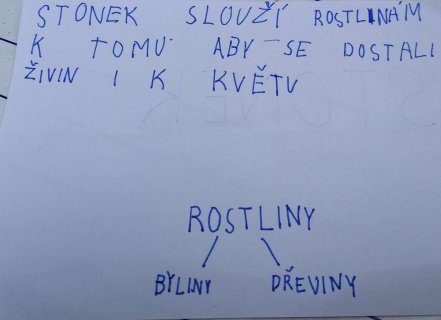 STONEK SLOUŽÍ ROSTLINÁM
K TOMU ABY SE DOSTALI
ŽIVIN I K KVĚTU
ROSTLINY
BYLINY DŘEVINY